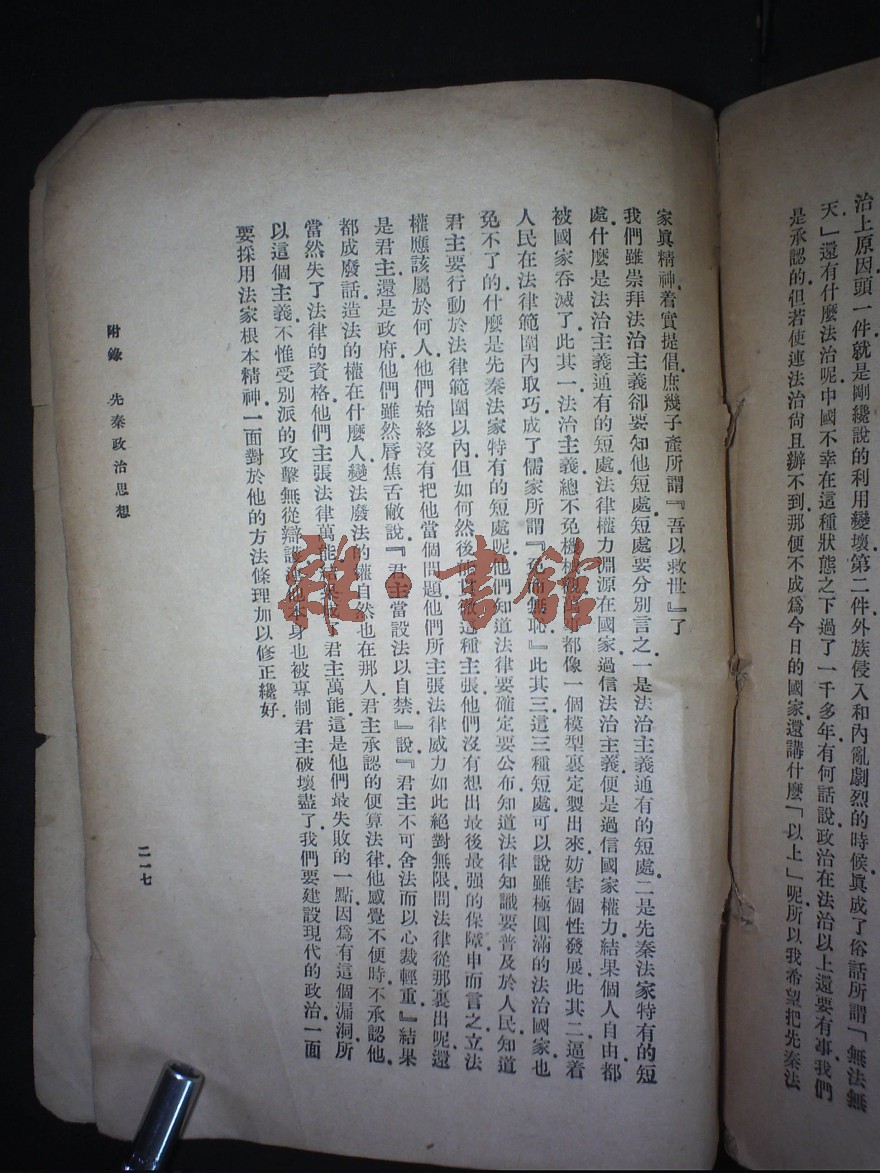 治上原因頭一件就是剛纔說的利用變壞第二件外族侵入和內亂劇烈的時候眞成了俗話所謂「無法無
天」還有什麼法治呢中國不幸在這種狀態之下過了一千多年有何話說政治在法治以上還要有事我們
是承認的但若使連法治尙且辦不到那便不成爲今日的國家還講什麼「以上」呢所以我希望把先秦法
家眞精神着實提倡庶幾子產所謂『吾以救世』了
我們雖崇拜法治主義卻要知他短處短處要分別言之一是法治主義通有的短處二是先秦法家特有的短
處什麼是法治主義通有的短處法律權力淵源在國家過信法治主義便是過信國家權力結果個人自由都
被國家吞滅了此其一法治主義總不免機械都像一個模型裏定製出來妨害個性發展此其二逼着
人民在法律範圍內取巧成了儒家所謂『免而無恥』此其三這三種短處可以說雖極圓滿的法治國家也
免不了的什麼是先秦法家特有的短處呢他們知道法律要確定要公布知道法律知識要普及於人民知道
君主要行動於法律範圍以內但如何然後這種主張他們沒有想出最後最强的保障申而言之立法
權應該屬於何人他們始終沒有把他當個問題他們所主張法律威力如此絕對無限問法律從那裏出呢還
是君主還是政府他們雖然唇焦舌敝說『君主當設法以自禁』說『君主不可舍法而以心裁輕重』結果
都成廢話造法的權在什麼人變法廢法的權自然也在那人君主承認的便算法律他感覺不便時不承認他
當然失了法律的資格他們主張法律萬能君主萬能這是他們最失敗的一點因爲有這個漏洞所
以這個主義不惟受別派的攻擊無從辯護本身也被專制君主破壞盡了我們要建設現代的政治一面
要採用法家根本精神一面對於他的方法條理加以修正纔好
附錄 先秦政治思想
二一七
雜·書館